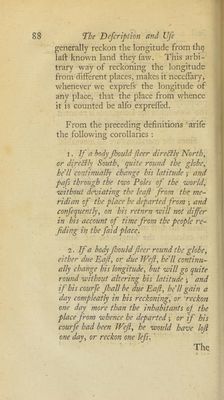 88 The Description and Use
generally reckon the longitude from the
last known land they saw. This arbi-
trary way of reckoning the longitude
from different places, makes it necessary,
whenever we express the longitude of
any place, that the place from whence
it is counted be also expressed.
From the preceding definitions arise
the following corollaries :
1. If a body should steer directly North,
or directly South, quite round the globe,
he'll continually change his latitude ; and
pass through the two Poles of the world,
without deviating the least from the me-
ridian of the place he departed from ; and
consequently, on his return will not differ
in his account of time from the people re-
siding in the said place.
2. If a body should steer round the globe,
either due East, or due West, he'll continu-
ally change his longitude, but will go quite
round without altering his latitude ; and
if his course shall be due East, he'll gain a
day compleatly in his reckoning, or reckon
one day more than the inhabitants of the
place from whence he departed ; or if his
course had been West, he would have lost
one day, or reckon one less.
The